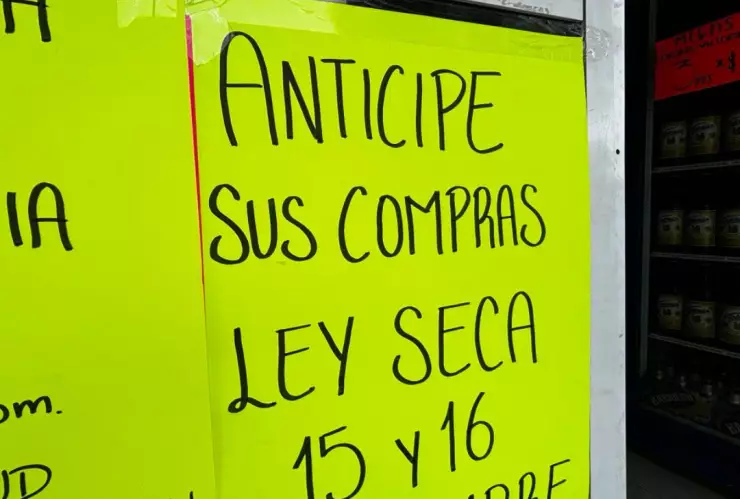 ANTICIPE
SUS COMPRAS
LEY SECA
15 y 16
IA
om.
UD